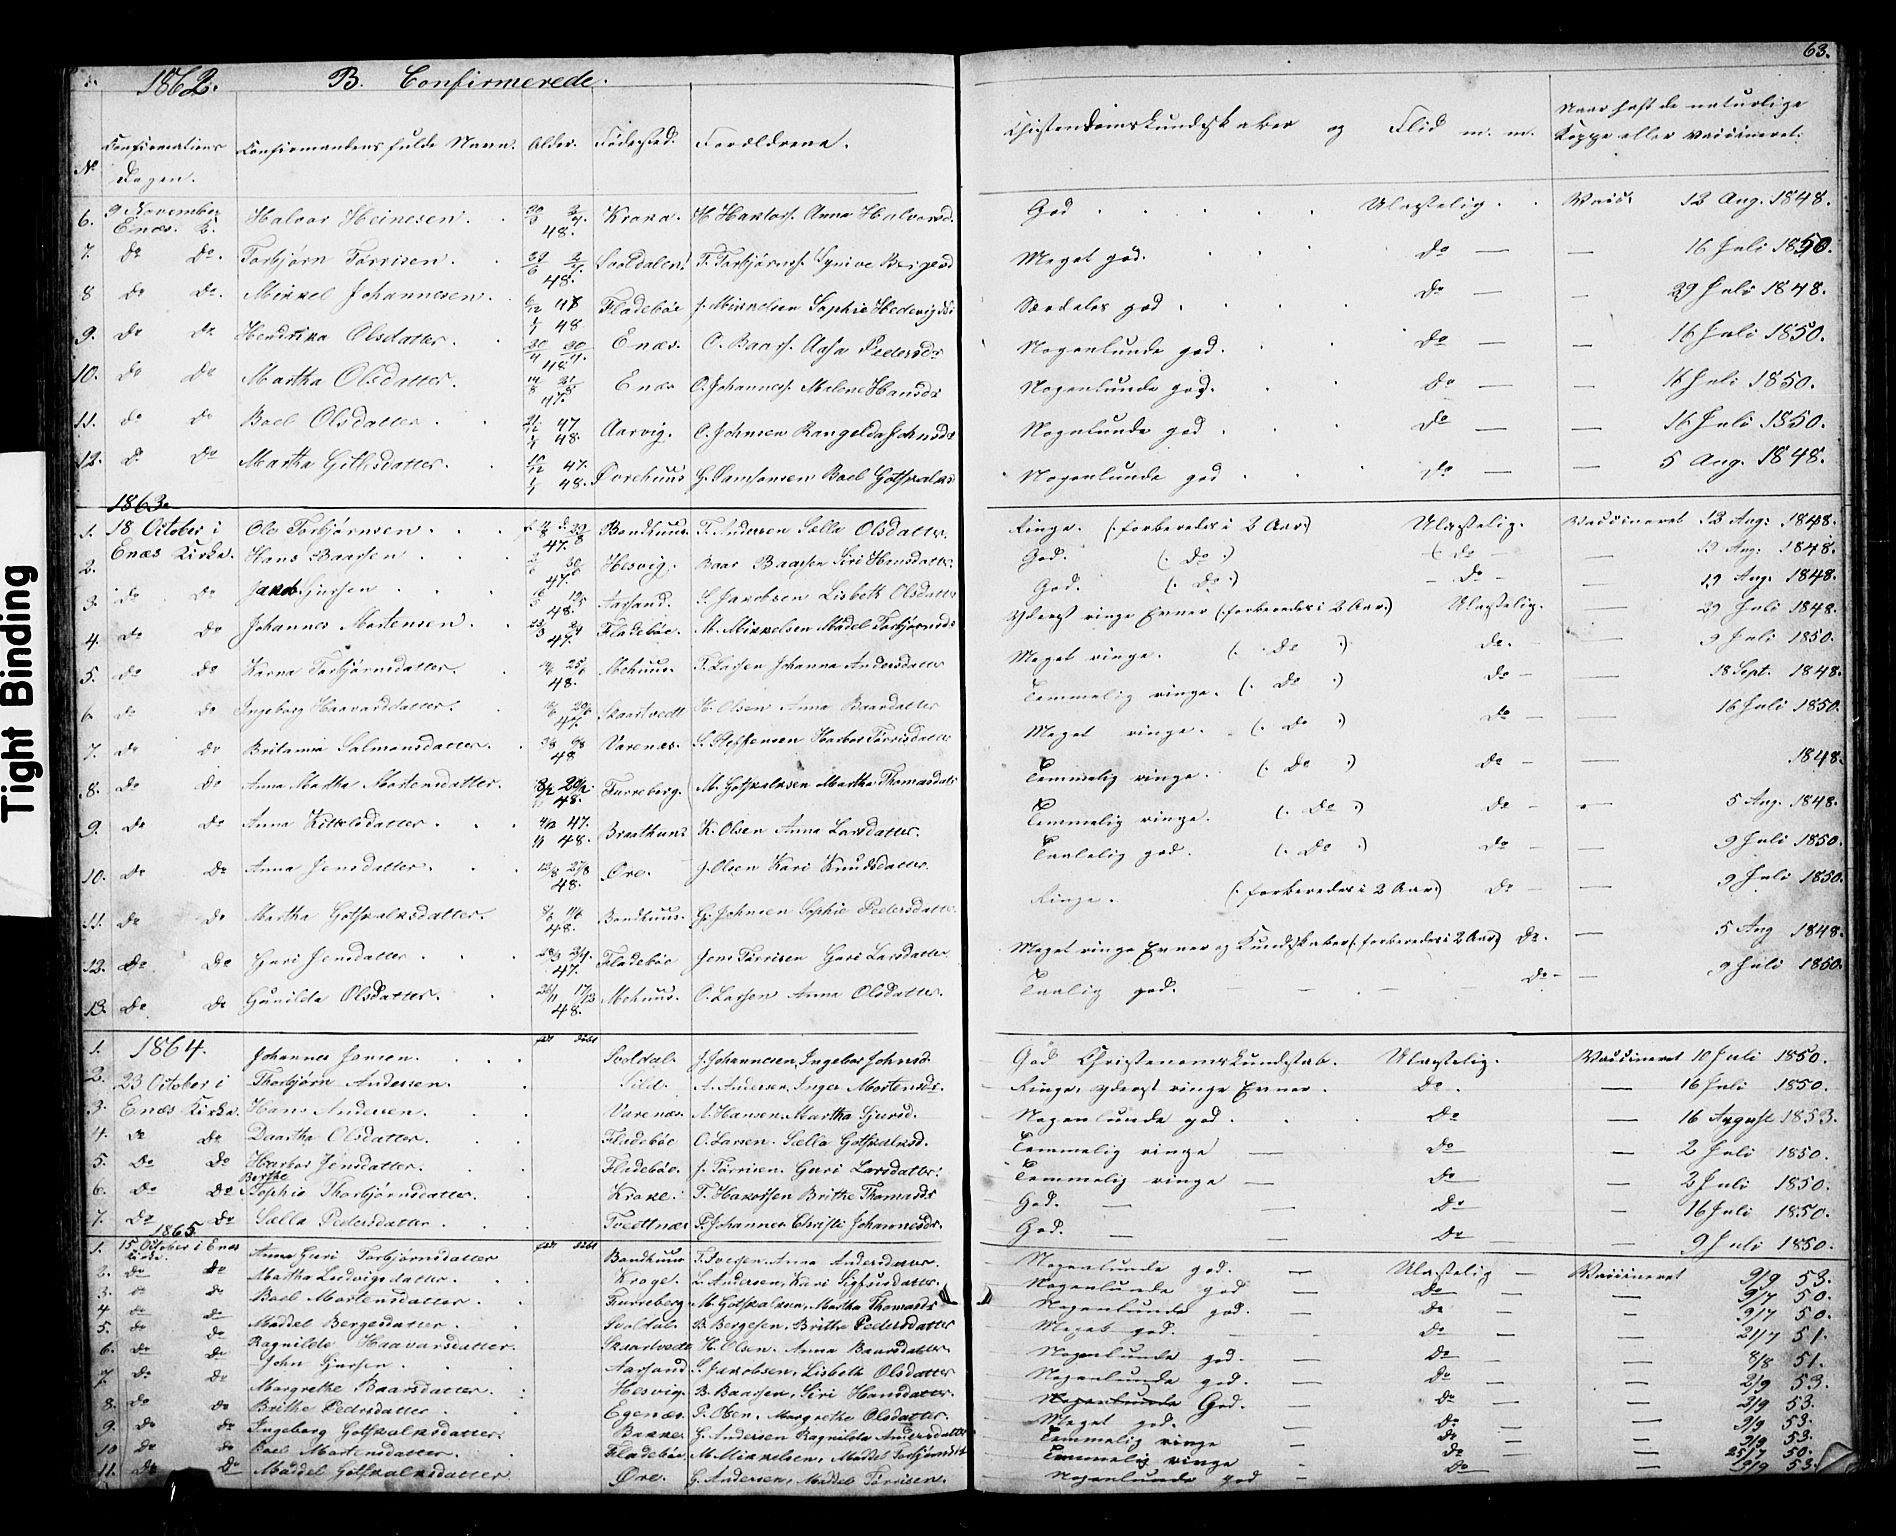 63.
1862. B. Confirmerede.
No Confirmations Dagen. Confirmandens fulde Navn. Alder. Fødested. Forældrene. Christendomskundskaber og Flid m. m. Naar haft de naturlige Kopper eller vaccineret.
6. 9 November Enæs K. Halvor Heinesen. 48. Kroka. Anna Halvorsd. God Ulastelig. Vacc. 12 Aug. 1848.
7. Do Do. Torbjørn Tørrisen. 48. T. Torbjørns. Meget god. Do 16 Juli 1850.
8 Do Do. Mikkel Johannesen. 6/12 47 1/1 48 Fladebøe J. Mikkelsen Sophie Hedevigsd. Særdeles god Do 29 Juli 1848.
9. Do Do Hendrika Olsdatter. 48 Enæs. O. Baars. Aasa Pedersdr Nogenlunde god. Do 16 Juli 1850.
10. Do Do Martha Olsdatter. 47. Enæs O. Johannes. Malene Hansdr Nogenlunde god. Do 16 Juli 1850.
11. Do Do Boel Olsdatter 47 1/1 48. Aarvig. O. Johnsen Rangelda Johnsdr Nogenlunde god Do 16 Juli 1850.
12. Do Do Martha Gitlesdatter. 47. 1/1 48. Øvrehuus G. Samsonsen Boel Gotskalksd Nogenlunde god Do 5 Aug. 1848.
1863.
1. 18 October i Ole Torbjørnsen 47. Bondhuus T. Andersen Sælla Olsdatter. Ringe. (: forberedes i 2 Aar:) Ulastelig. Vaccineret 12 Aug: 1848.
2. Enæs Kirke. Hans Baarsen 47. Hesvig. Baar Baarsen Siri Hansdatter. God. (: Do :) Do 12 Aug: 1848.
3. Do Do Jakob Gjursen 48. Aarsand. G. Jacobsen Lisbeth Olsdatter God. (: Do :) Do 12 Aug. 1848.
4. Do Do Johannes Mortensen. 47. Fladebøe. M. Mikkelsen Madel Torbjørnsdr Yderst ringe Evner (: forberedes i 2 Aar:) Ulastelig. 29 Juli 1848.
5. Do Do Karna Torbjørnsdatter. 48. Mehuus. T. Larsen Johanna Andersdatter Meget ringe. (: Do :) Do. 9 Juli 1850.
6. Do Do Ingeborg Haavardsdatter. 47. Skaartvedt H. Olsen Anna Baarsdatter Temmelig ringe. (: Do :) Do 18 Sept. 1848.
7. Do Do Britania Salmonsdatter. 48 Varenæs. S. Steffensen Harbor Tørrisdatter Meget ringe. (: Do :) Do 16 Juli 1850.
8. Do Do Anna Martha Mortensdatter. 48. Furreberg. M. Gotskalksen Martha Thomasdatr Temmelig ringe. (: Do :) Do 1848.
9. Do Do Anna Kittelsdatter. 47. 1/1 48. Braathuus K. Olsen Anna Larsdatter. Temmelig ringe. (: Do :) Do 5 Aug. 1848.
10. Do Do Anna Jensdatter. 48. Øre. J. Olsen Kari Knudsdatter. Taalelig god. (: Do :) Do 9 Juli 1850.
11. Do Do Martha Gotskalksdatter. 48. Bondhuus. G. Johnsen Sophie Pedersdatter. Ringe. (: forberedes i 2 Aar:) Do 9 Juli 1850.
12. Do Do Guri Jensdatter 47. Fladebøe Jens Tørrisen Guri Larsdatter Meget ringe Evner og Kundskaber (: forberedes i 2 Aar:) Do. 5 Aug 1848.
13. Do Do Gunilda Olsdatter. 48. Mehuus. O. Larsen Anna Olsdatter. Taalig god. Do 9 Juli 1850.
1864.
1. Johannes Jonsen. Svoldal. J. Johannesen, Ingebor Johnsd God Christendomskundskab. Ulastelig. Vaccineret 10 Juli 1850.
2. 23 October i Thorbjørn Andersen. Sild. A. Andersen, Inger Mortensdr. Ringe, yderst ringe Evner. Do. 16 Juli 1850.
3. Enæs Kirke. Hans Andersen. Varenæs. A. Hansen, Martha Gjursd. Nogenlunde god. Do 16 August 1853.
4. Do Do Daartha Olsdatter. Fladebøe O. Larsen. Sælla Gotskalksd. Temmelig ringe Do 2 Juli 1850.
5. Do Do Harbor Jensdatter. Fladebøe. J. Tørrisen. Guri Larsdatter. Temmelig ringe Do 2 Juli 1850.
6. Do Do Berthe Sophie Thorbjørnsdatter. Kroke. T. Hakorsen Brithe Thomasdr God. Do 16 Juli 1850.
7. Do Do Sælla Pedersdatter Tvedtnæs P. Johannes. Christi Johannesdr. God. Do 9 Juli 1850.
1865
1. 15 October i Enæs Kirke. Anna Guri Torbjørnsdatter Bondhuus T. Iversen. Anna Andersdatter. Nogenlunde god. Ulastelig Vaccineret 9/9 53.
2. Do Do Martha Ludvigsdatter. Kroge. L. Andersen, Kari Sigfusdatter. Nogenlunde god Do 9/7 50.
3. Do Do Boel Mortensdatter. Furreberg M. Gotskalksen, Martha Thomasdr Nogenlunde god. Do 9/7 50.
4. Do Do Maddel Bergesdatter. Svoldal. B. Bergesen, Brithe Pedersdatter Meget god. Do 21/7 51.
5. Do Do Ragnilde Haavarsdatter. Skaartvedt H. Olsen. Anna Baarsdatter. Nogenlunde god. Do 8/8 51.
6. Do Do John Gjursen. Aarsand G. Jacobsen, Lisbeth Olsdatter Nogenlunde god. Do 2/9 53.
7. Do Do Margrethe Baarsdatter. Hesvig. B. Baarsen, Siri Hansdatter. Nogenlunde God. Do 2/9 53.
8. Do Do Brithe Pedersdatter Egenæs. P. Olsen, Margrethe Olsdatter. Meget god. Do 9/9 53.
9. Do Do Ingeborg Gotskalksdatter. Bakke. G. Andersen Ragnilda Andersdatter Temmelig ringe Do 9/9 53.
10 Do Do Boel Mortensdatter. Fladebøe. M. Mikkelsen, Maddel Torbjørnsdr Temmelig ringe Do 25/7 50.
11. Do Do Maddel Gotskalksdatter Øre. G. Andersen, Maddel Tørrisen. Nogenlunde god Do 9/9 53.
Tight Binding